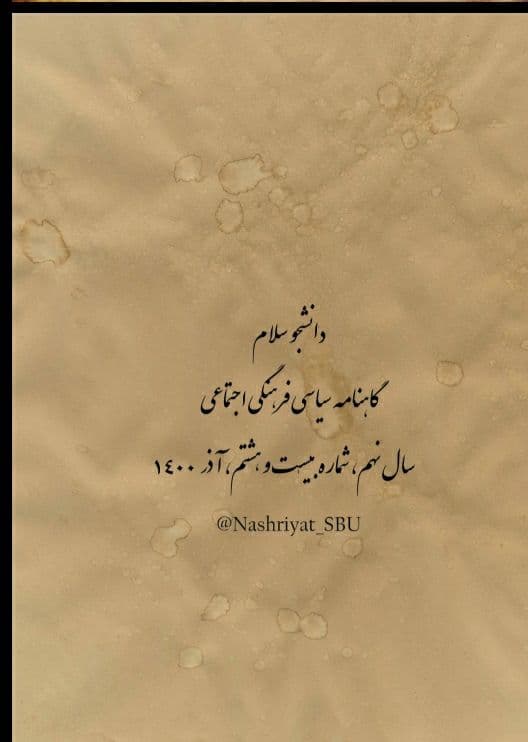 دانشجو سلام
گاهنامه سیاسی فرهنگی اجتماعی
سال نهم، شماره بیست و هشتم، آذر ۱۴۰۰
@Nashriyat_SBU